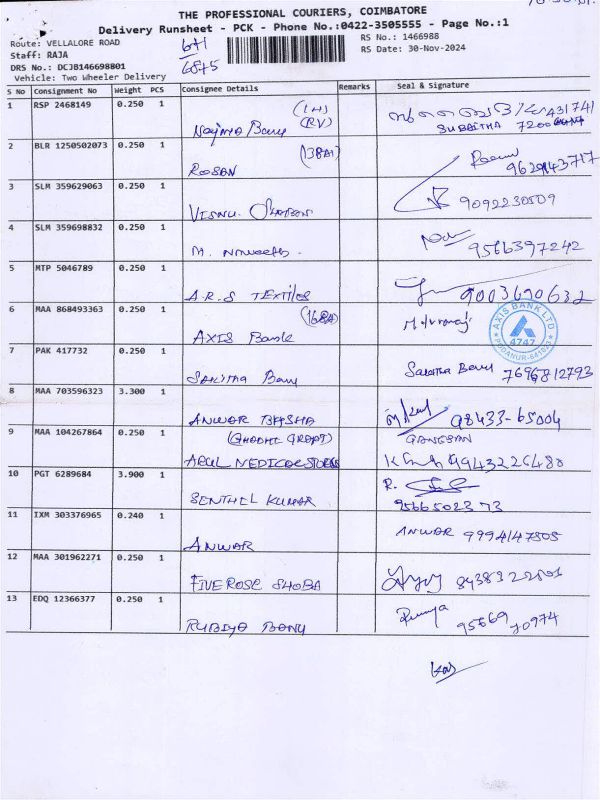 THE PROFESSIONAL COURIERS, COIMBATORE
Delivery Runsheet - PCK - Phone No.:0422-3505555 - Page No.:1
Route: VELLALORE ROAD
RS No.: 1466988
Staff: RAJA
RS Date: 30-Nov-2024
DRS No.: DCJB146698801
6845
Vehicle: Two Wheeler Delivery
S No Consignment No Weight PCS Consignee Details Remarks Seal & Signature
1 RSP 2468149 0.250 1
Najma Banu
SUBAITHA
2 BLR 1250502073 0.250 1
ROSAN
9629143717
3 SLM 359629063 0.250 1
VISNU
9092230509
4 SLM 359698832 0.250 1
M.
9566397242
5 MTP 5046789 0.250 1
A.R.S TEXTILES
9003690632
6 MAA 868493363 0.250 1
AXIS Bank
AXIS BANK LTD
4747
7 PAK 417732 0.250 1
Sabitha Banu
Sabitha Banu 7696812793
8 MAA 703596323 3.300 1
ANWAR BASHA
98433-65004
9 MAA 104267864 0.250 1
GANESAN
ABUL MEDICAL STORES
9943226480
10 PGT 6289684 3.900 1
R.
SENTHIL KUMAR
9566502373
11 IXM 303376965 0.240 1
ANWAR
ANWAR 9994147505
12 MAA 301962271 0.250 1
FIVE ROSE SHOBA
13 EDQ 12366377 0.250 1
RUBIYA BANU
95669 70974